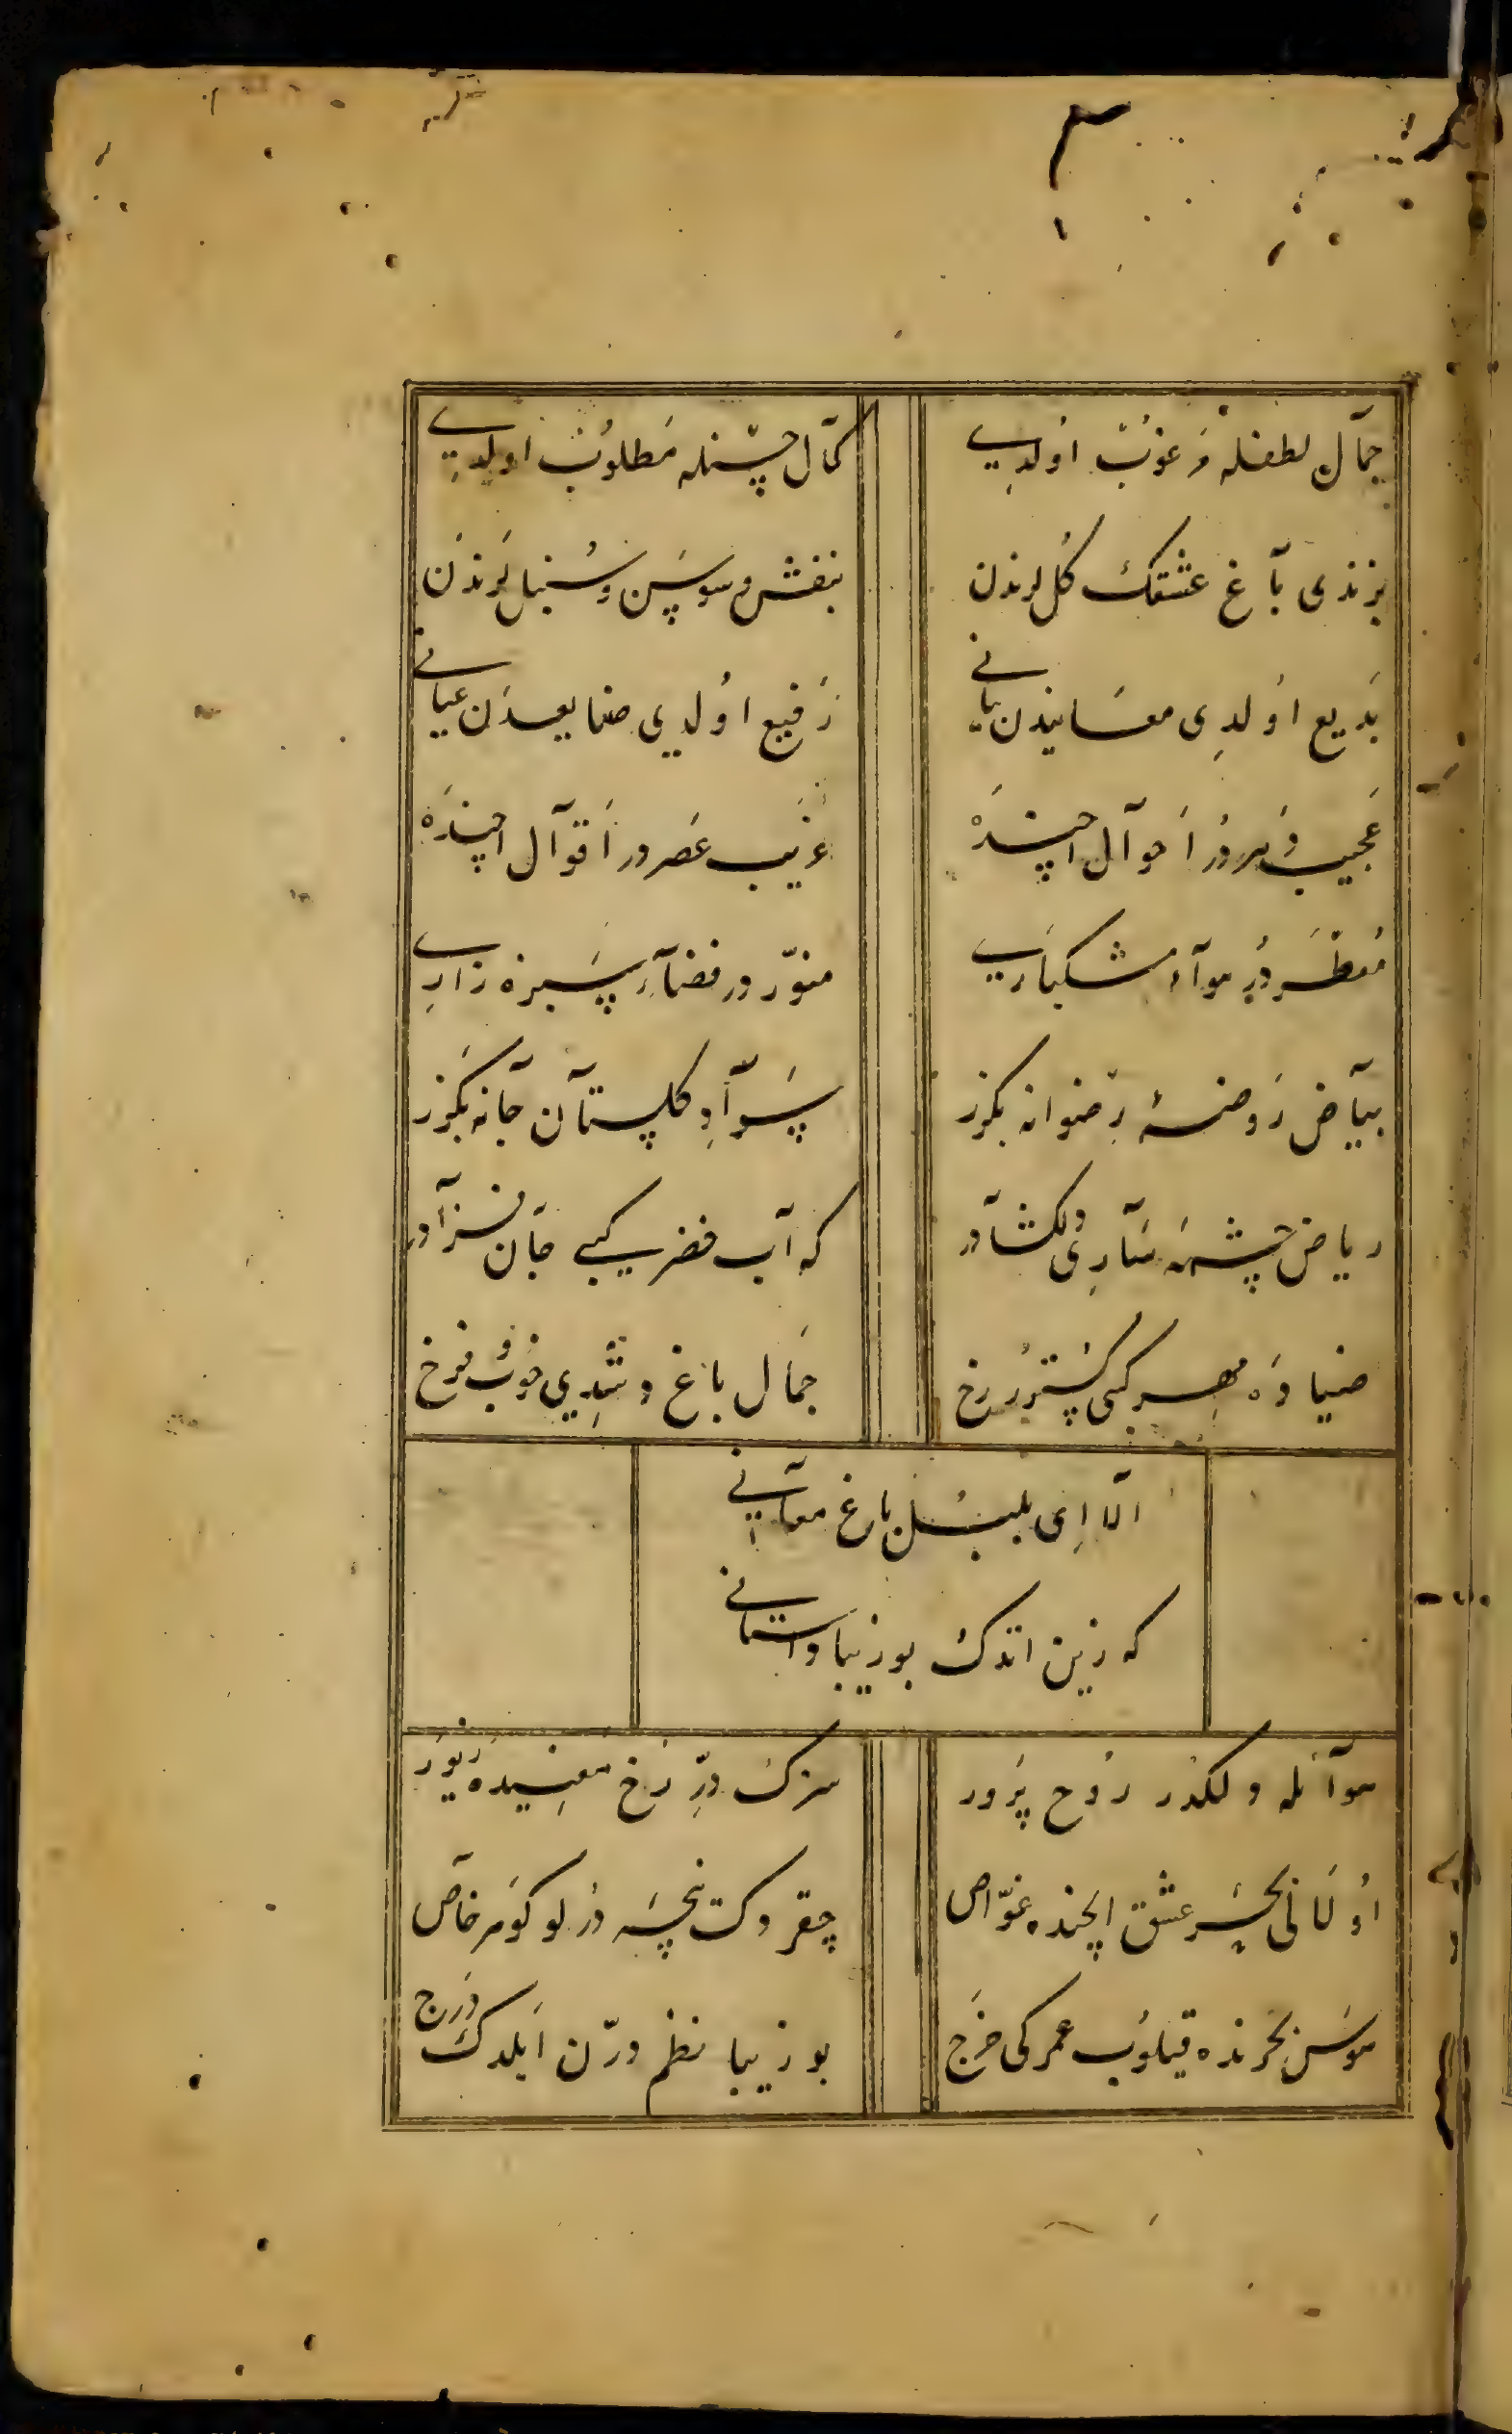 جمال لطفله مرغوب اولدی
کمال حسنله مطلوب اولدی
بزندی باغ عشقک کل لرندن
بنفش و سوسن و سنبل لرندن
بدیع اولدی معانیدن بیانی
رفیع اولدی صنایعدن عیانی
عجیب دهر در احوال ایچنده
غریب عصر در اقوال ایچنده
معطر در هوآء مشکباری
منور در فضآء سبزه زاری
بیاض روضۀ رضوانه بکزر
سواد کلستان جانه بکزر
ریاض چشمه ساری دلکشادر
که آب خضر کبی جان فزادر
ضیا ده مهر کبی کستررخ
جمال باغ و شدی خوب فرخ
الا ای بلبل باغ معانی
که زین اتدک بو زیبا داستانی
هوآئله دلکدر روح پرور
سزک در رخ معنیده زیور
اولالی بحر عشق ایچنده غواص
چقردک نیچه در لو کوهر خاص
هوس بحرنده قیلوب عمرکی خرج
بو زیبا نظم درن ایلدک درج